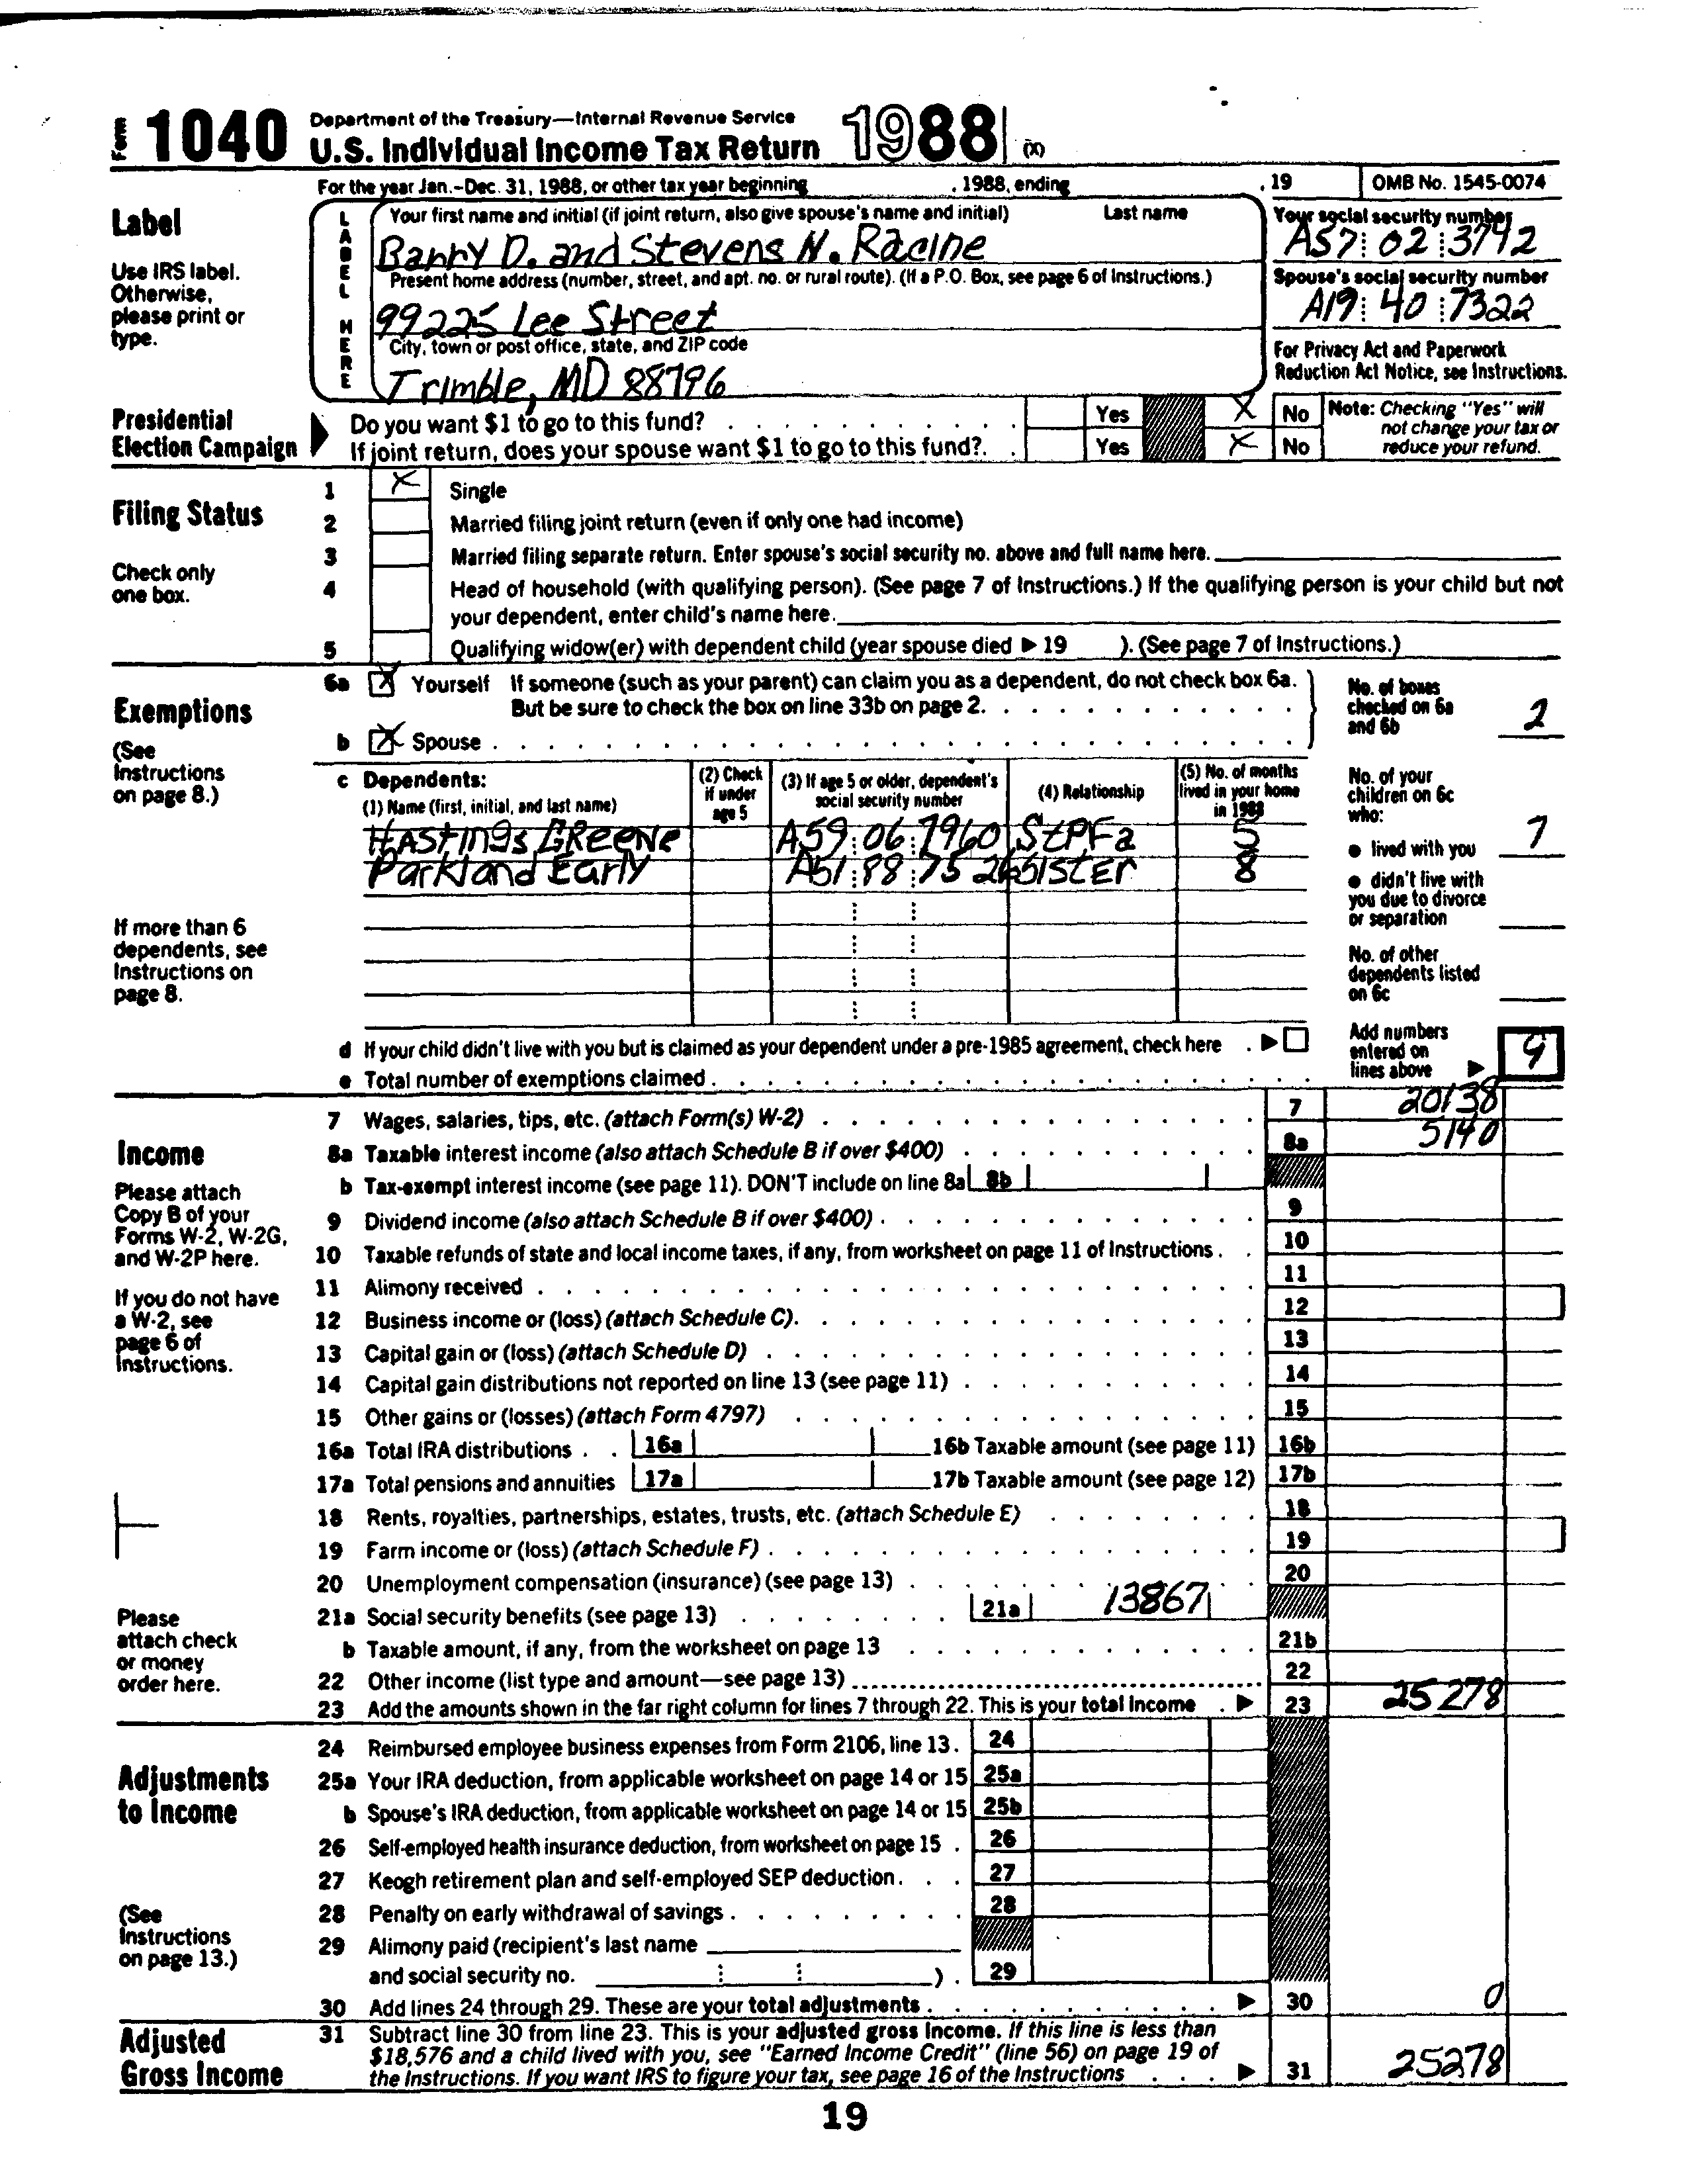 Form 1040 Department of the Treasury—Internal Revenue Service
U.S. Individual Income Tax Return 1988 (X)
For the year Jan.-Dec. 31, 1988, or other tax year beginning , 1988, ending , 19 OMB No. 1545-0074
Label
Use IRS label.
Otherwise,
please print or
type.
LABEL HERE
Your first name and initial (if joint return, also give spouse's name and initial) Last name
Barry D. and Stevens N. Racine
Your social security number
A57 02 3742
Present home address (number, street, and apt. no. or rural route). (If a P.O. Box, see page 6 of Instructions.)
99225 Lee Street
Spouse's social security number
A19 40 7322
City, town or post office, state, and ZIP code
Trimble, MD 88796
For Privacy Act and Paperwork
Reduction Act Notice, see Instructions.
Presidential
Election Campaign
Do you want $1 to go to this fund? Yes X No
If joint return, does your spouse want $1 to go to this fund? Yes X No
Note: Checking "Yes" will
not change your tax or
reduce your refund.
Filing Status
Check only
one box.
1 X Single
2 Married filing joint return (even if only one had income)
3 Married filing separate return. Enter spouse's social security no. above and full name here.
4 Head of household (with qualifying person). (See page 7 of Instructions.) If the qualifying person is your child but not
your dependent, enter child's name here.
5 Qualifying widow(er) with dependent child (year spouse died ▶ 19 ). (See page 7 of Instructions.)
Exemptions
(See
Instructions
on page 8.)
6a X Yourself If someone (such as your parent) can claim you as a dependent, do not check box 6a.
But be sure to check the box on line 33b on page 2.
b X Spouse
No. of boxes
checked on 6a
and 6b 2
c Dependents:
(1) Name (first, initial, and last name)
(2) Check
if under
age 5
(3) If age 5 or older, dependent's
social security number
(4) Relationship
(5) No. of months
lived in your home
in 1988
HASTINgs GREENE A59 06 7960 StPFa 5
Parkland Early A51 88 7526 SISTER 8
If more than 6
dependents, see
Instructions on
page 8.
No. of your
children on 6c
who:
● lived with you 7
● didn't live with
you due to divorce
or separation
No. of other
dependents listed
on 6c
d If your child didn't live with you but is claimed as your dependent under a pre-1985 agreement, check here ▶
e Total number of exemptions claimed
Add numbers
entered on
lines above ▶ 9
Income
Please attach
Copy B of your
Forms W-2, W-2G,
and W-2P here.
If you do not have
a W-2, see
page 6 of
Instructions.
Please
attach check
or money
order here.
7 Wages, salaries, tips, etc. (attach Form(s) W-2) 7 20138
8a Taxable interest income (also attach Schedule B if over $400) 8a 5140
b Tax-exempt interest income (see page 11). DON'T include on line 8a 8b
9 Dividend income (also attach Schedule B if over $400) 9
10 Taxable refunds of state and local income taxes, if any, from worksheet on page 11 of Instructions 10
11 Alimony received 11
12 Business income or (loss) (attach Schedule C) 12
13 Capital gain or (loss) (attach Schedule D) 13
14 Capital gain distributions not reported on line 13 (see page 11) 14
15 Other gains or (losses) (attach Form 4797) 15
16a Total IRA distributions 16a 16b Taxable amount (see page 11) 16b
17a Total pensions and annuities 17a 17b Taxable amount (see page 12) 17b
18 Rents, royalties, partnerships, estates, trusts, etc. (attach Schedule E) 18
19 Farm income or (loss) (attach Schedule F) 19
20 Unemployment compensation (insurance) (see page 13) 20
21a Social security benefits (see page 13) 21a 13867
b Taxable amount, if any, from the worksheet on page 13 21b
22 Other income (list type and amount—see page 13) 22
23 Add the amounts shown in the far right column for lines 7 through 22. This is your total income ▶ 23 25278
Adjustments
to Income
(See
Instructions
on page 13.)
24 Reimbursed employee business expenses from Form 2106, line 13 24
25a Your IRA deduction, from applicable worksheet on page 14 or 15 25a
b Spouse's IRA deduction, from applicable worksheet on page 14 or 15 25b
26 Self-employed health insurance deduction, from worksheet on page 15 26
27 Keogh retirement plan and self-employed SEP deduction 27
28 Penalty on early withdrawal of savings 28
29 Alimony paid (recipient's last name
and social security no. ) 29
30 Add lines 24 through 29. These are your total adjustments ▶ 30 0
Adjusted
Gross Income
31 Subtract line 30 from line 23. This is your adjusted gross income. If this line is less than
$18,576 and a child lived with you, see "Earned Income Credit" (line 56) on page 19 of
the Instructions. If you want IRS to figure your tax, see page 16 of the Instructions ▶ 31 25278
19